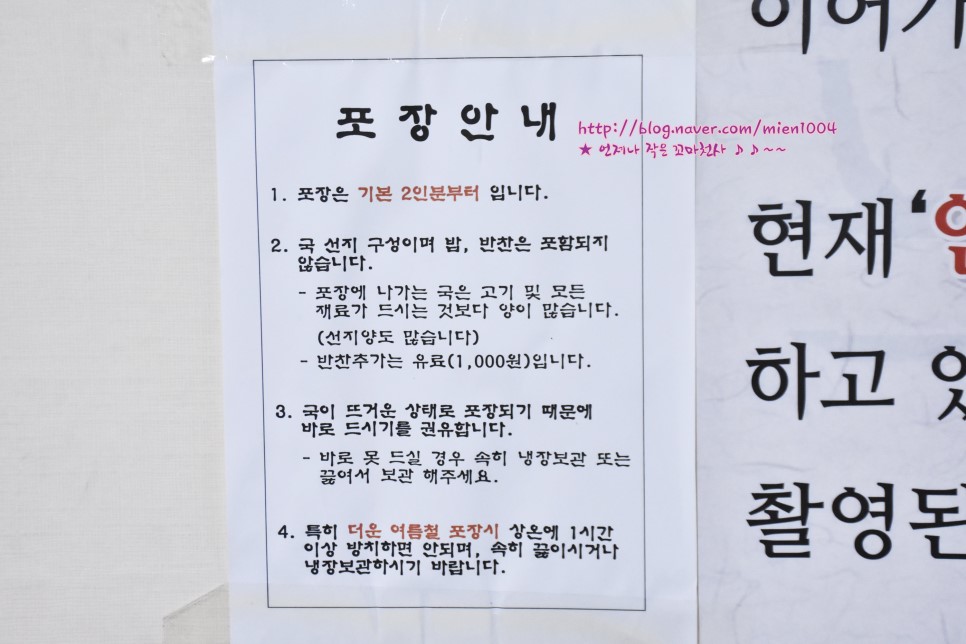 포장안내
http://blog.naver.com/mien1004
★ 언제나 작은 꼬마천사 ♪ ♪ ~ ~
1. 포장은 기본 2인분부터 입니다.
2. 국 선지 구성이며 밥, 반찬은 포함되지
않습니다.
- 포장에 나가는 국은 고기 및 모든
재료가 드시는 것보다 양이 많습니다.
(선지양도 많습니다)
- 반찬추가는 유료(1,000원)입니다.
3. 국이 뜨거운 상태로 포장되기 때문에
바로 드시기를 권유합니다.
- 바로 못 드실 경우 속히 냉장보관 또는
끓여서 보관 해주세요.
4. 특히 더운 여름철 포장시 상온에 1시간
이상 방치하면 안되며, 속히 끓이시거나
냉장보관하시기 바랍니다.
현재 '
하고
촬영된